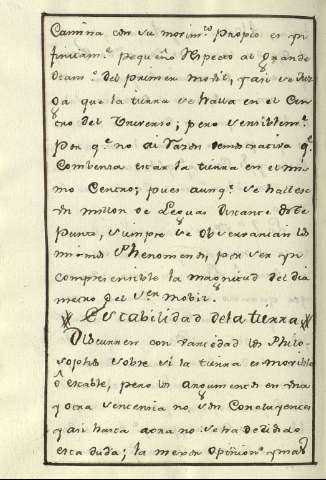 Camina con su movim.to propio es yn
finitam.e pequeño respecto al grande
Ocam.o del primer mobil, y asi se juz
ga que la tierra se halla en el Cen
tro del Universo; pero sensiblem.e
por q.e no ai razon demostrativa q.e
Combensa estar la tierra en el mis
mo Centro; pues aunq.e se hallese
un millon de Leguas distante deste
punto, siempre se observarian los
mismos Phenomenos, por ser yn
compreensible la magnitud del dia
metro del 1er mobil.
Estabilidad de la tierra
Discurren con variedad los Philo-
sophos sobre si la tierra es movible
ô estable, pero los argumentos en una
y otra sentensia no son Concluyentes
y asi hasta aora no se ha desidido
esta duda; la mejor opinion y mas